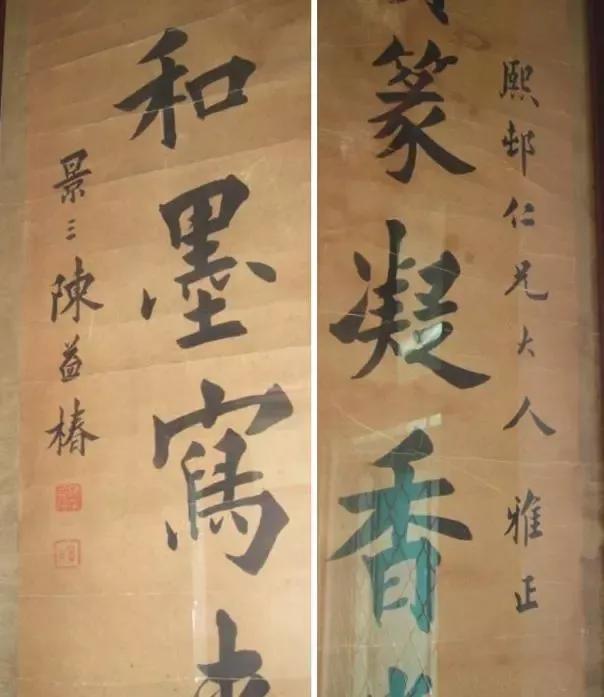 熙邨仁兄大人 雅正
篆凝香
和墨寫
景三陳益椿